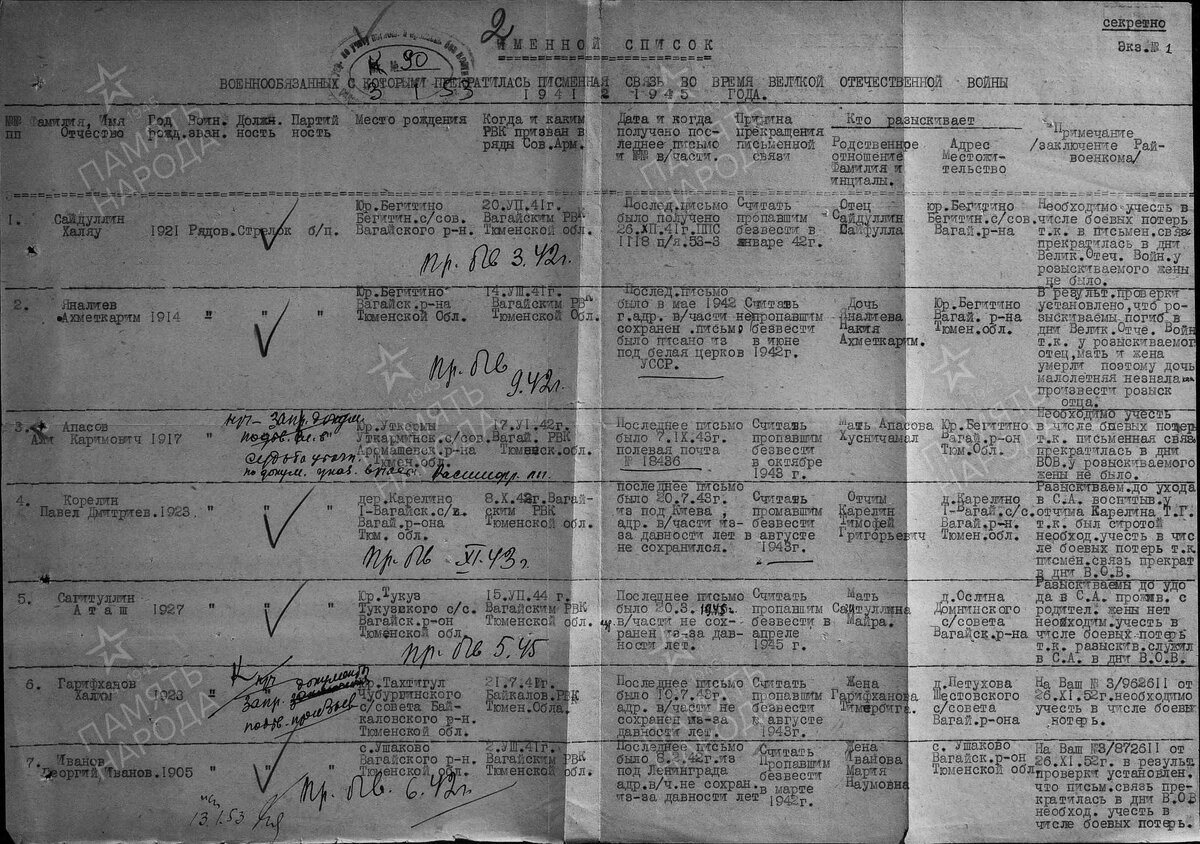 секретно
Экз.№ 1
2
№ 90
3 I 53
ИМЕННОЙ СПИСОК
ВОЕННООБЯЗАННЫХ С КОТОРЫМИ ПРЕКРАТИЛАСЬ ПИСМЕННАЯ СВЯЗЬ ВО ВРЕМЯ ВЕЛИКОЙ ОТЕЧЕСТВЕННОЙ ВОЙНЫ
1941 1945 ГОДА.
№№ пп
Фамилия, Имя
Отчество
Год
рожд.
Воин.
зван.
Должн.
ность
Партий
ность
Место рождения
Когда и каким
РВК призван в
ряды Сов.Арм.
Дата и когда
получено пос-
леднее письмо
и №№ в/части.
Причина
прекращения
письменной
связи
Кто разыскивает
Родственное
отношение
Фамилия и
инциалы.
Адрес
Местожи-
тельство
Примечание
/заключение Рай-
военкома/
1. Сайдуллин
Халяу 1921 Рядов. Стрелок б/п.
Юр.Бегитино
Бегитин.с/сов.
Вагайского р-н.
20.УП.41г.
Вагайским РВК
Тюменской обл.
Послед.письмо
было получено
26.ХП.41г.ППС
1118 п/я.53-3
Считать
пропавшим
безвести в
январе 42г.
Отец
Сайдуллин
Сайфулла
юр.Бегитино
Бегитин.с/сов.
Вагай.р-на
Необходимо учесть в
числе боевых потерь
т.к. в письмен.связь
прекратилась в дни
Велик.Отеч. Войн.у
розыскиваемого жены
не было.
пр. бв 3.42г.
2. Яналиев
Ахметкарим 1914 " " "
Юр.Бегитино
Вагайск.р-на
Тюменской обл.
14.УШ.41г.
Вагайским РВК
Тюменской обл.
Послед.письмо
было в мае 1942
г.адр. в/части не
сохранен .письмо
было писано из
под белая церков
УССР.
Считать
пропавшим
безвести
в июне
1942г.
Дочь
Яналиева
Закия
Ахметкарим.
Юр.Бегитино
Вагай. р-на
Тюмен.обл.
В результ.проверки
установлено,что ро-
зыскиваемы погиб в
дни Велик.Отче. Войн
т.к. у розыскиваемог
отец,мать и жена
умерли поэтому дочь
малолетняя незнала
произвести розыск
отца.
пр. бв
9.42г.
3. Апасов
Ахи Каримович 1917 "
Юр.Уткермы
Уткарминск.с/сов
Аромашевск.р-на
Тюмен.обл.
17.УІ.42г.
Вагай. РВК
Тюменск.обл.
Последнее письмо
было 7.IХ.43г.
полевая почта
№ 18436
Считать
пропавшим
безвести
в октябре
1943 г.
Мать Апасова
Хусничамал
Юр.Бегитино
Вагай.р-он
Тюм.Обл.
Необходимо учесть
в числе боевых потерь
т.к. письменная связь
прекратилась в дни
ВОВ.у розыскиваемого
жены не было.
4. Корелин
Павел Дмитриев.1923 " " "
дер.Карелино
I-Вагайск.с/в.
Вагай.р-она
Тюм. обл.
8.Х.42г.Вагай-
ским РВК
Тюменской обл.
последнее письмо
было 20.7.43г.
из под Киева ,
адр. в/части из-
за давности лет
не сохранился.
Считать
промавшим
безвести
в августе
1943г.
Отчим
Карелин
Тимофей
Григорьевич
д.Карелино
I-Вагай.с/с
Вагай.р-н.
Тюмен.обл.
Разыскиваем.до ухода
в С.А. воспитыв.у
отчима Карелина Т.Г.
т.к. был сиротой
необход.учесть в чис
ле боевых потерь т.к
письмен.связь прекрат
в дни В.О.В.
пр. бв XI.43г.
5. Сагитуллин
Аташ 1927 " " "
Юр.Тукуз
Тукузского с/с.
Вагайск.р-он
Тюменской обл.
15.УП.44 г.
Вагайским РВК
Тюменской обл.
Последнее письмо
было 20.3. 1945г.
в/части не сох-
ранен из-за дав-
ности лет.
Считать
пропавшим
безвести в
апреле
1945 г.
Мать
Саитуллина
Майра.
д.Ослина
Домнинского
с/совета
Вагайск.р-на
Разыскиваемы до ухо
да в С.А. прожив. с
родител. жены нет
необходим.учесть в
числе боевых потерь
т.к. разыскив.служил
в С.А. в дни В.О.В.
пр. бв 5.45
6. Гарифханов
Халим 1923 "
Юр.Тахтигул
Чубургинского
с/совета Бай-
каловского р-н.
Тюменской обл.
21.7.41г.
Байкалов.РВК
Тюмен.Обла.
Последнее письмо
было 10.7.43г.
в/части не
сохранен из-за
давности лет.
Считать
пропавшим
безвести
в августе
1943г.
Жена
Гарифханова
Тимербига.
д.Петухова
Шестовского
с/совета
Вагай.р-она
На Ваш № 3/962611 от
26.ХІ.52г.необходимо
учесть в числе боевы
потерь.
7. Иванов
Георгий Иванов.1905 " " "
с.Ушаково
Вагайского р-н.
Тюменской обл.
2.УШ.41г.
Вагайским РВК
Тюменской обл.
Последнее письмо
было 8.3.42г.из
под Ленинграда
адр.в/ч.не сохран.
из-за давности лет
Считать
Пропавшим
безвести
в марте
1942г.
Жена
Иванова
Мария
Наумовна
с. Ушаково
Вагайск.р-он
Тюменской обл
На Ваш №3/872611 от
26.ХІ.52г.в результ
проверки установлен.
что письм.связь пре-
кратилась в дни В.О.В
необход. учесть в
числе боевых потерь.
пр. бв. 6.42г.
13.1.53
ПАМЯТЬ НАРОДА